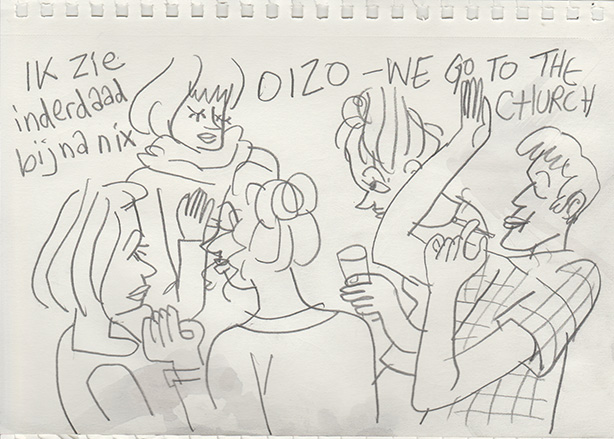 IK zie
inderdaad
bijna nix
OIZO – WE GO TO THE
CHURCH